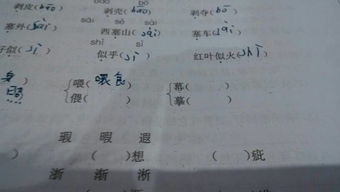 剥皮(bāo) 剥壳(bāo) 剥夺(bō)
sāi sài sè
塞外(sài) 西塞山(sài) 塞车(sāi)
shì sì
好似(sì) 似乎(sì) 红叶似火(sì)
喂(喂食) 幕( )
照 偎( ) 摹( )
瑕 暇 遐
) ( )想 ( )疵
渐 渐 渐